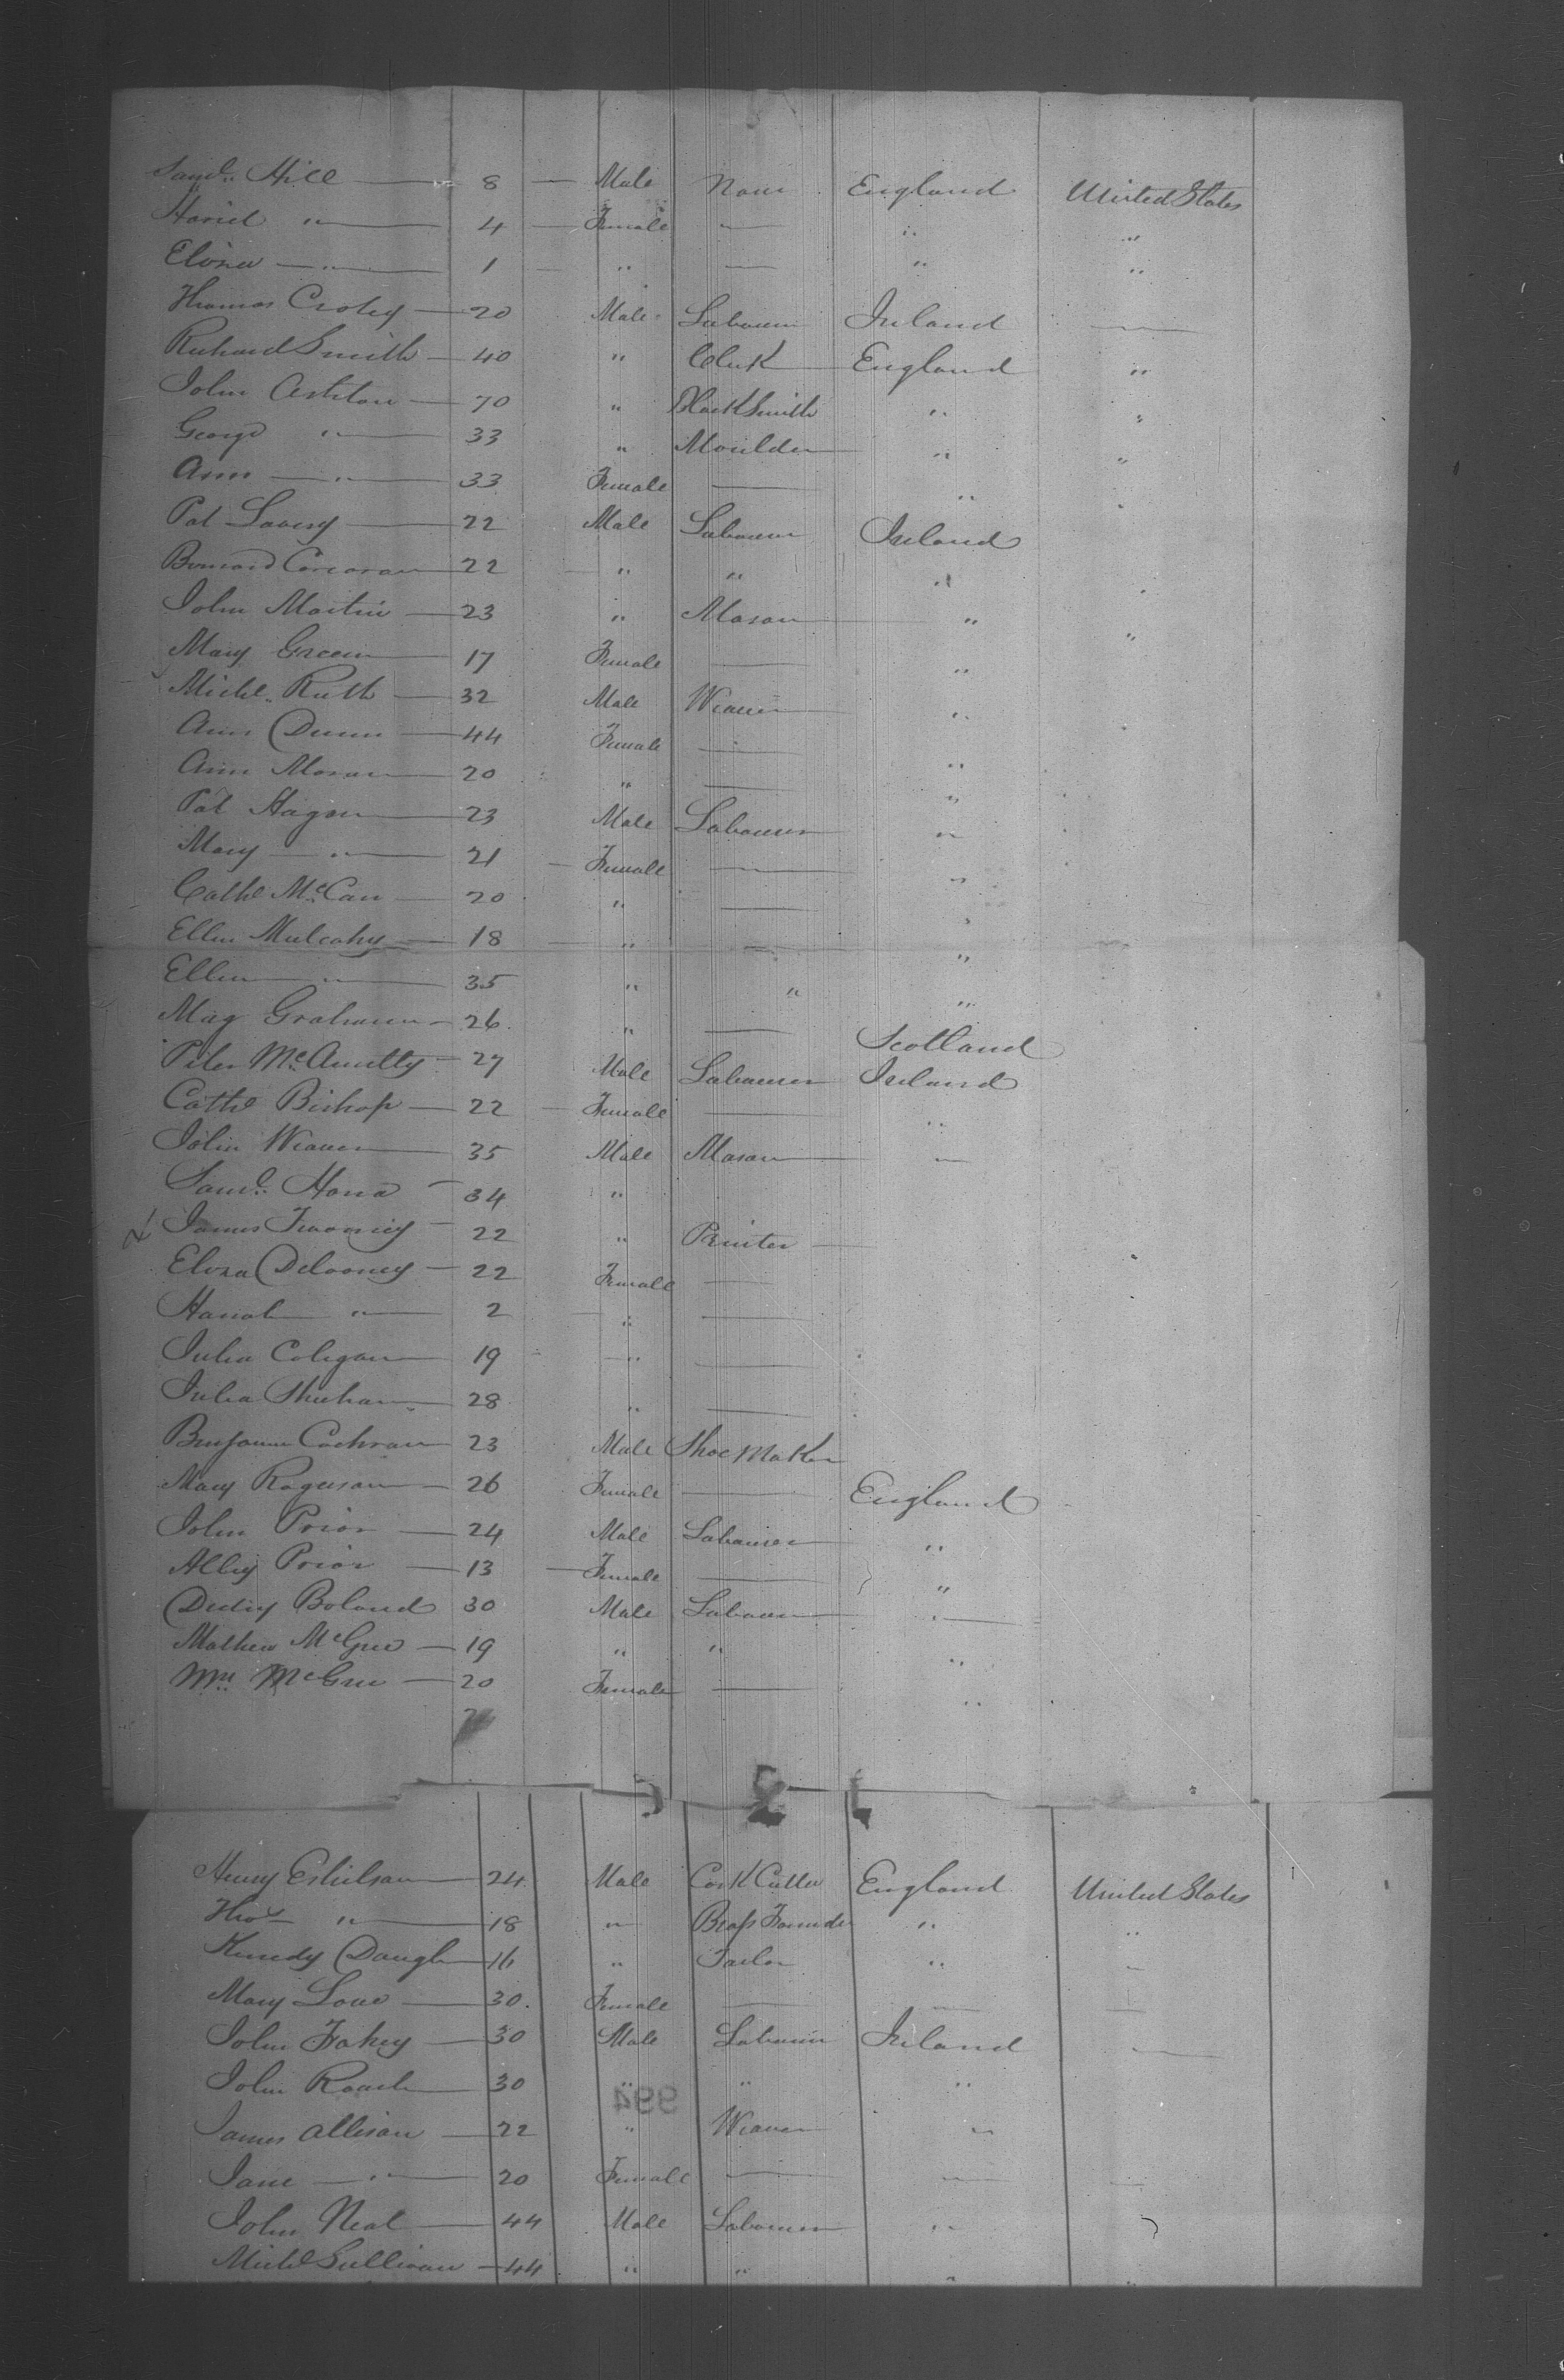 Saml. Hill — 8 — Male None England United States
Hariet " — 4 — Female — " "
Eliza — " — 1 — " — " "
Thomas Croley — 20 Male Labourer Ireland —
Richard Smith — 40 " Clerk England "
John Ashton — 70 " Black Smith " "
George " — 33 " Moulder — " "
Ann — " — 33 Female — " "
Pat Lavery — 22 Male Labourer Ireland
Bernard Corcoran — 22 — " " "
John Martin — 23 " Mason — " "
Mary Green — 17 Female — "
Michl. Ruth — 32 Male Weaver — "
Ann Dunn — 44 Female — "
Ann Moran — 20 " — "
Pat Hagan — 23 Male Labourer "
Mary — " — 21 — Female — "
Cathe McCan — 20 " — "
Ellen Mulcahy — 18 — " — "
Ellen — " — 35 " " "
Mag Graham — 26 " — Scotland
Peter McAnultty — 27 Male Labourer Ireland
Cathe Bishop — 22 — Female — "
John Weaver — 35 Male Mason — "
Saml. Hana — 34 "
James Twomey — 22 " Printer —
Eliza Delooney — 22 Female —
Hanah " — 2 — " —
Julia Coligan — 19 — " —
Julia Shehan — 28 " —
Benjamin Cochran — 23 Male Shoe Maker
Mary Rogerson — 26 Female — England
John Prior — 24 Male Labourer — "
Alley Prior — 13 — Female — "
Boland 30 Male Labourer — " —
Mathew McGee — 19 " " "
McGee — 20 Female — "
Henry — 24 Male Cork Cutter England United States
Thos " — 18 " Brass Founder " "
Kenedy — 16 " Tailor " "
Mary Love — 30 Female — " —
John Fahey — 30 Male Labourer Ireland —
John Roach — 30 " " "
994
James Allison — 22 " Weaver "
Jane — " — 20 Female — — —
John Neal — 44 Male Labourer " "
Michl Sullivan — 44 " " " "